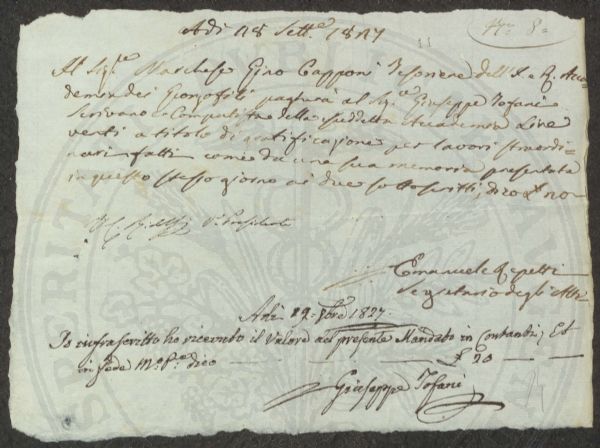 Adì 28 Sett.e 1827
N.° 8.
Il Sig.re Marchese Gino Capponi Tesoriere dell'I. e R. Acca-
demia dei Georgofili pagherà al Sig.re Giuseppe Tofani
scrivano e Computista della suddetta Accademia Lire
venti a titolo di gratificazione per lavori straordi=
nari fatti come da una sua memoria presentata
in questo stesso giorno ai due sottoscritti, dico £ 20-
V. Presidente
Emanuele Repetti
Segretario degli Atti
Adì 29 8bre 1827.
Io infrascritto ho ricevuto il Valore nel presente Mandato in Contanti; Et
in fede M.o P.a dico — £ 20 —
Giuseppe Tofani